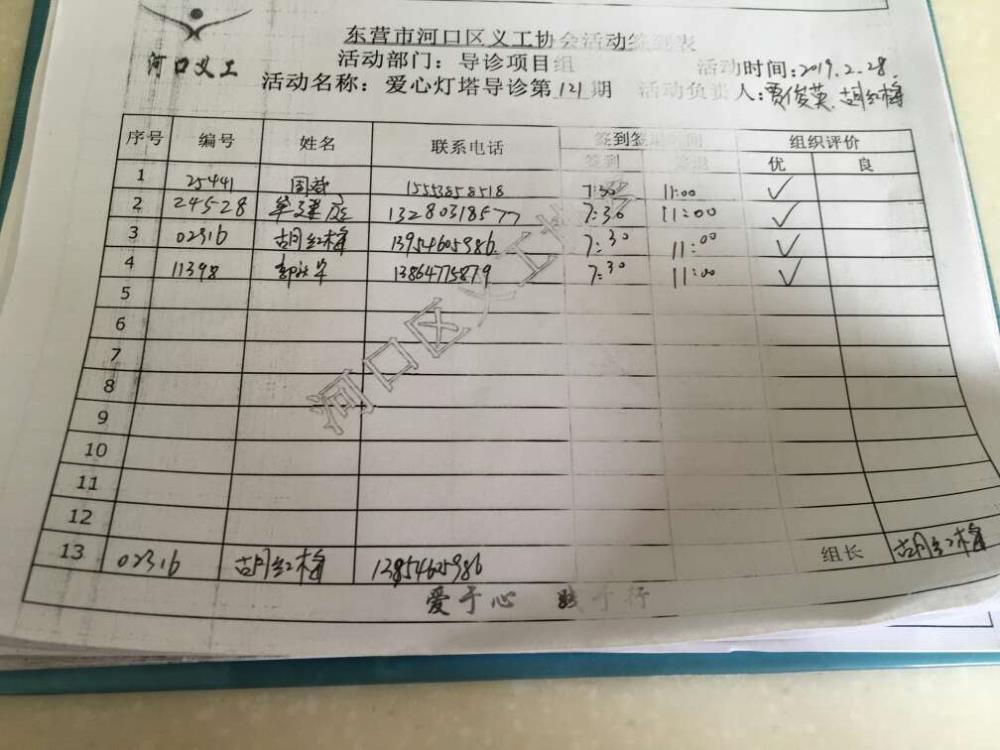 东营市河口区义工协会活动签到表
河口义工
活动部门：导诊项目组 活动时间：2019.2.28.
活动名称：爱心灯塔导诊第121期 活动负责人：贾俊英、胡红梅
序号 编号 姓名 联系电话 签到签退时间 组织评价
签到 签退 优 良
1 25441 15553858518 7:30 11:00 ✓
2 24528 13280318577 7:30 11:00 ✓
3 02316 胡红梅 13954605986 7:30 11:00 ✓
4 11398 13864775879 7:30 11:00 ✓
5
6
7
8
9
10
11
12
13 02316 胡红梅 13854605986 组长 胡红梅
爱于心 践于行
河口区义工协会